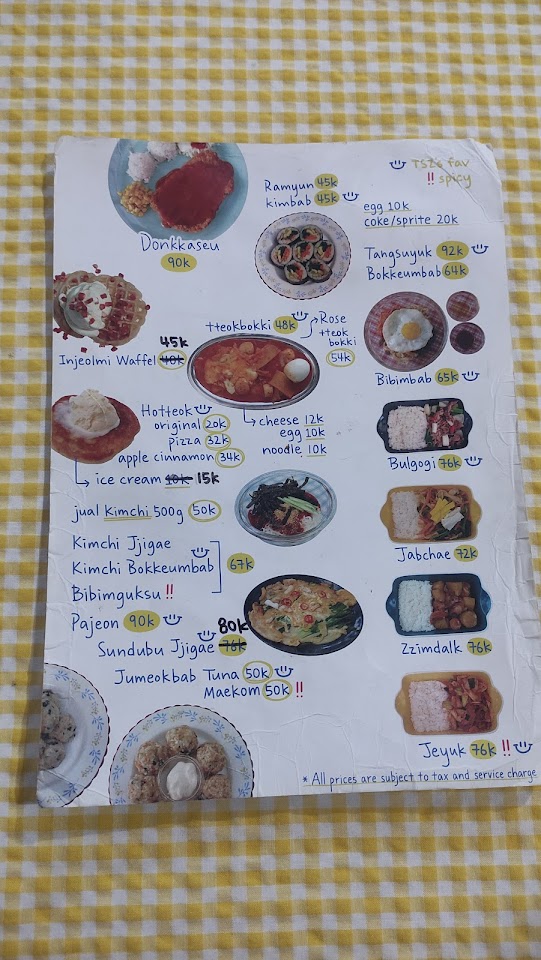 TSZ's fav
!! spicy
Ramyun 45k
Kimbab 45k
egg 10k
coke/sprite 20k
Donkkaseu
90k
Tangsuyuk 92k
Bokkeumbab 64k
tteokbokki 48k
Rose
tteok
bokki
54k
45k
Injeolmi Waffel 40k
Bibimbab 65k
Hotteok
original 20k
pizza 32k
apple cinnamon 34k
ice cream 10k 15k
cheese 12k
egg 10k
noodle 10k
Bulgogi 76k
jual Kimchi 500g 50k
Kimchi Jjigae
Kimchi Bokkeumbab
Bibimguksu !!
67k
Jabchae 72k
Pajeon 90k
80k
Sundubu Jjigae 76k
Zzimdalk 76k
Jumeokbab Tuna 50k
Maekom 50k !!
Jeyuk 76k !!
* All prices are subject to tax and service charge